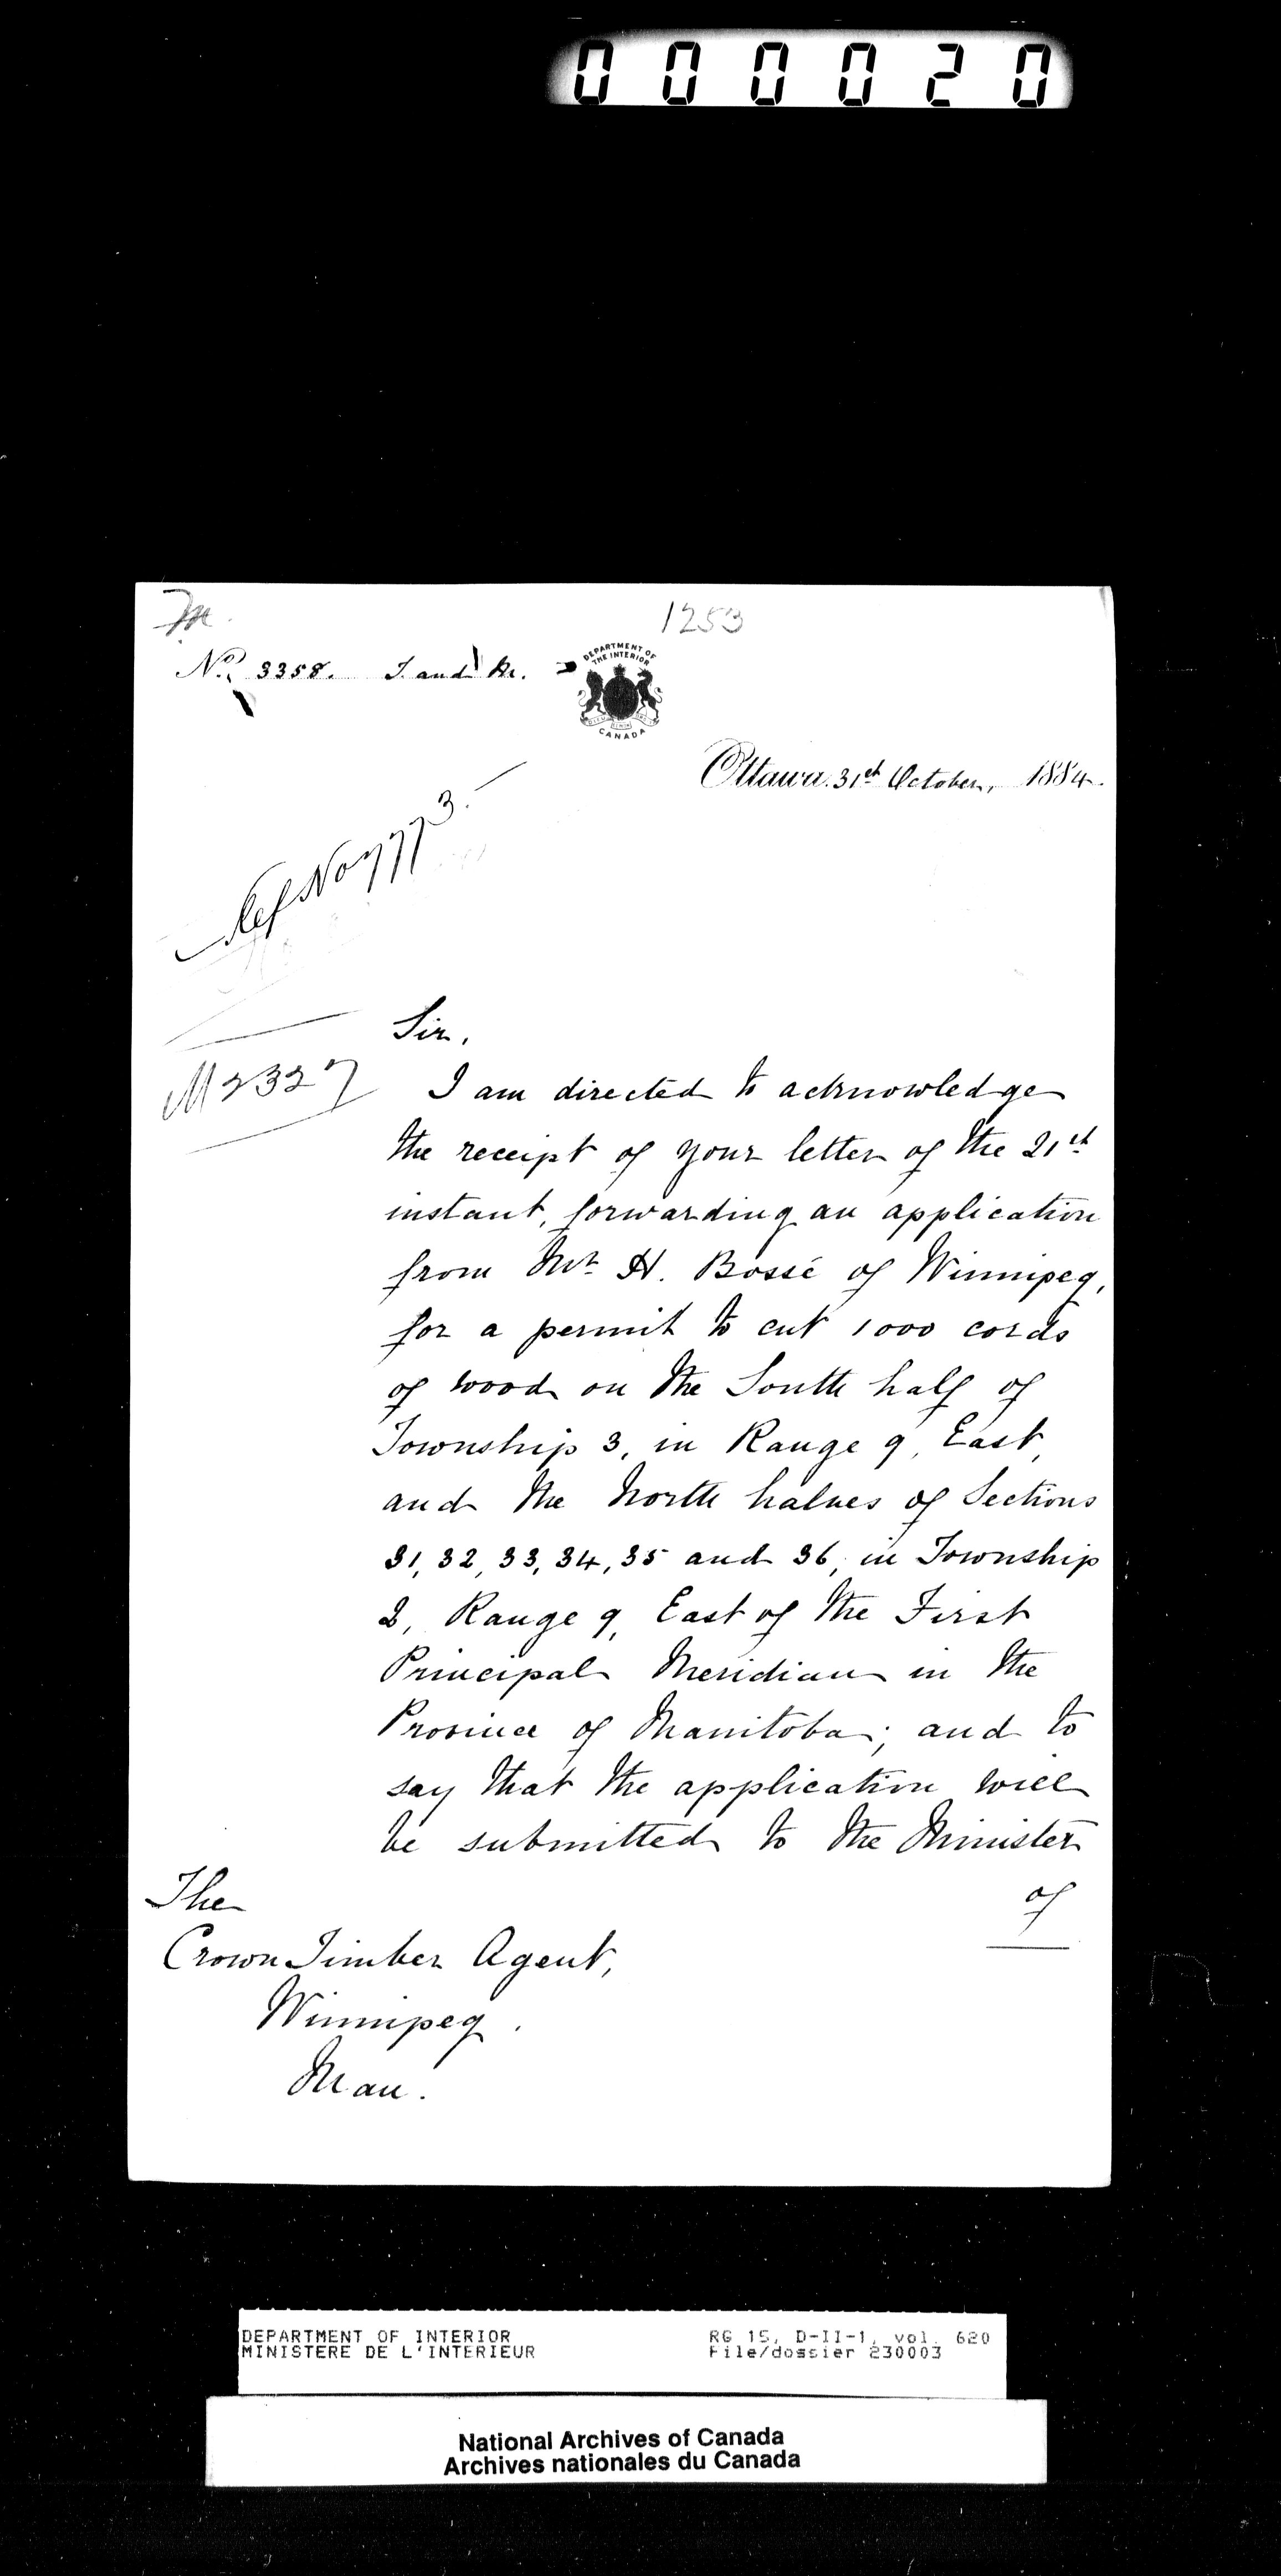 000020
1253
No. 3358. T. and M.
DEPARTMENT OF
THE INTERIOR
CANADA
Ottawa. 31st October, 1884.
Ref No 7773.
Sir,
M 2327
I am directed to acknowledge
the receipt of your letter of the 21st
instant, forwarding an application
from Mr. H. Bossé of Winnipeg,
for a permit to cut 1000 cords
of wood on the South half of
Township 3, in Range 9, East,
and the North halves of Sections
31, 32, 33, 34, 35 and 36, in Township
2, Range 9, East of the First
Principal Meridian in the
Province of Manitoba; and to
say that the application will
be submitted to the Minister
of
The
Crown Timber Agent,
Winnipeg.
Man.
DEPARTMENT OF INTERIOR
MINISTERE DE L'INTERIEUR
RG 15, D-II-1, vol. 620
File/dossier 230003
National Archives of Canada
Archives nationales du Canada